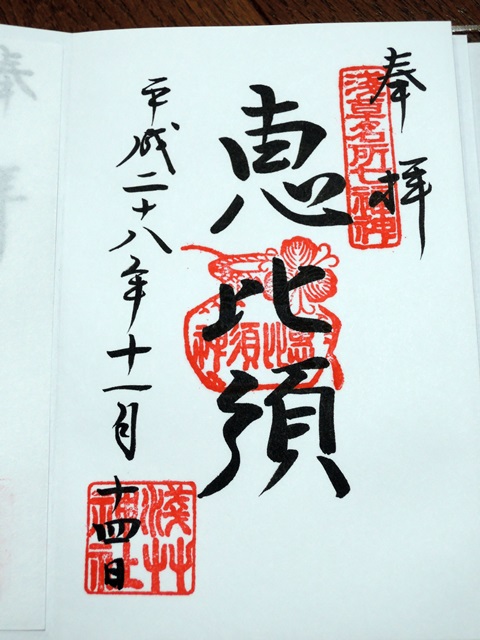 奉拝
淺草名所七福神
恵比須
恵比須神
平成二十八年十一月十四日
淺草神社